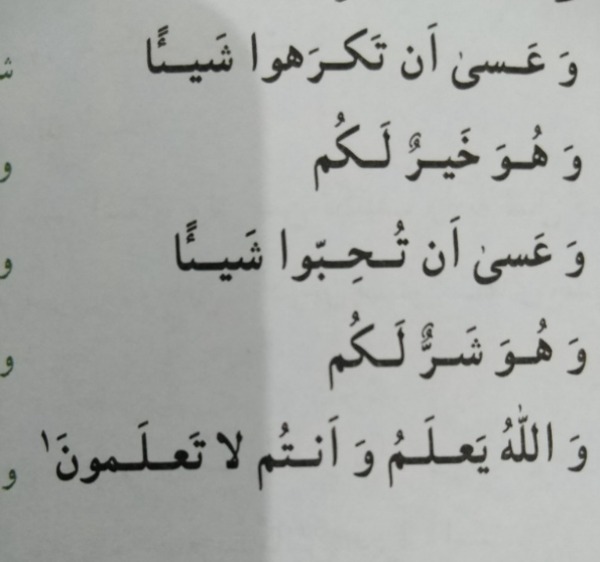 وَ عَسىٰ اَن تَكرَهوا شَيـًٔا
وَ هُوَ خَيرٌ لَكُم
وَ عَسىٰ اَن تُحِبّوا شَيـًٔا
وَ هُوَ شَرٌّ لَكُم
وَ اللّٰهُ يَعلَمُ وَ اَنتُم لا تَعلَمونَ١